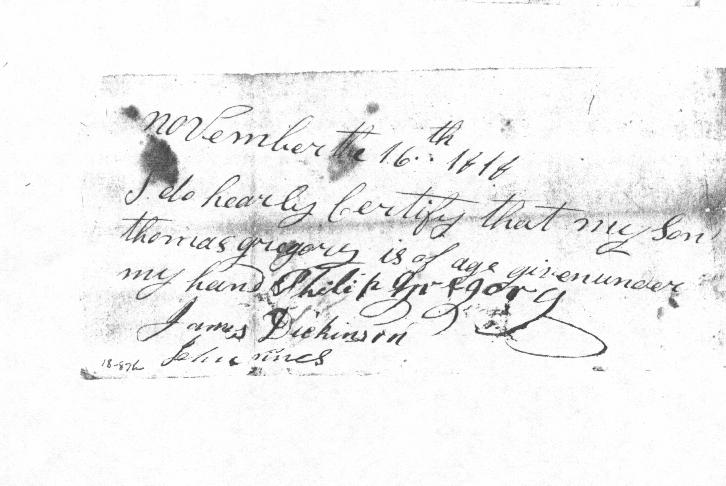 november the 16th 1818
I do hearby Certify that my Son
thomas gregory is of age given under
my hand Philip Gregory
James Dickinson
John
18-876